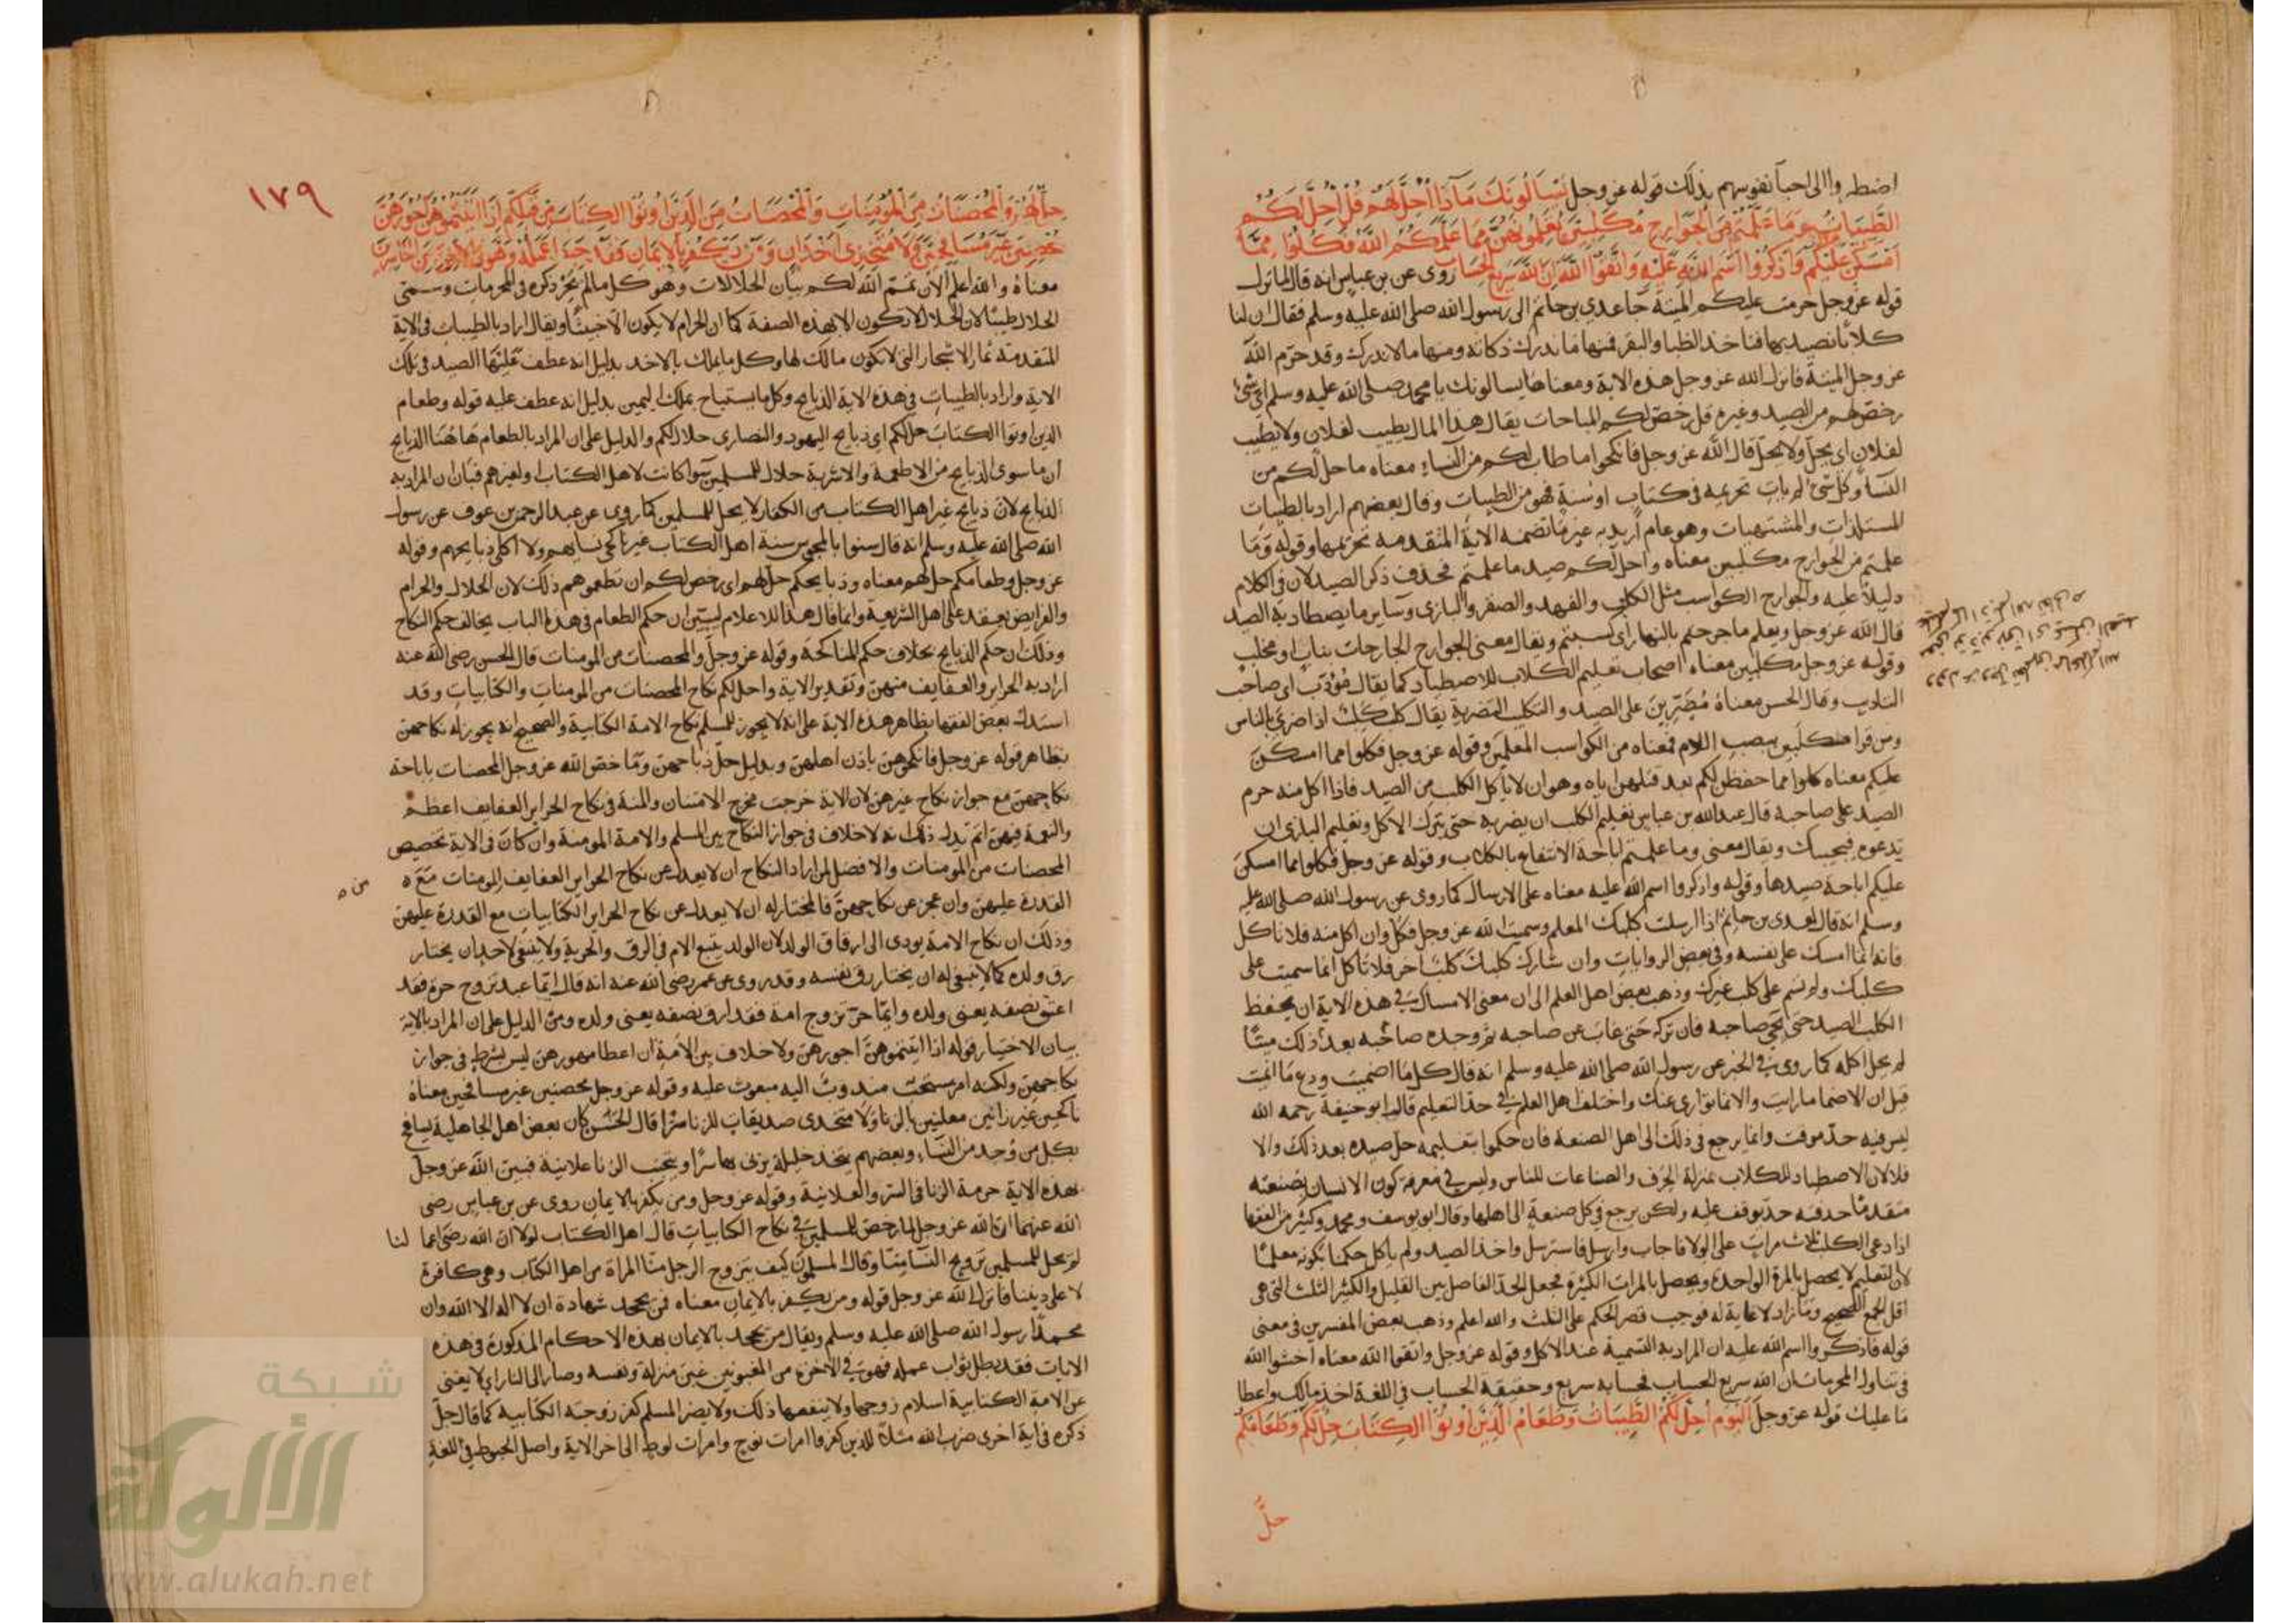 اضطروا الى احيا نفوسهم بذلك قوله عز وجل يَسْأَلُونَكَ مَاذَا أُحِلَّ لَهُمْ قُلْ أُحِلَّ لَكُمُ
الطَّيِّبَاتُ وَمَا عَلَّمْتُمْ مِنَ الْجَوَارِحِ مُكَلِّبِينَ تُعَلِّمُونَهُنَّ مِمَّا عَلَّمَكُمُ اللَّهُ فَكُلُوا مِمَّا
أَمْسَكْنَ عَلَيْكُمْ وَاذْكُرُوا اسْمَ اللَّهِ عَلَيْهِ وَاتَّقُوا اللَّهَ إِنَّ اللَّهَ سَرِيعُ الْحِسَابِ روى عن بن عباس انه قال لما نزل
قوله عز وجل حرمت عليكم الميتة جا عدي بن حاتم الى رسول الله صلى الله عليه وسلم فقال ان لنا
كلابا نصيد بها فتاخذ الظبا والبقر فمنها ما ندرك ذكاته ومنها ما لا ندرك وقد حرم الله
عز وجل الميتة فانزل الله عز وجل هذه الاية ومعناها يسالونك يا محمد صلى الله عليه وسلم اي شئ
رخص لهم من الصيد وغيره قل رخص لكم المباحات يقال هذا المال يطيب لفلان ولا يطيب
لفلان اي يحل ولا يحل قال الله عز وجل فانكحوا ما طاب لكم من النساء معناه ما حل لكم من
النسا وكل شئ لم يات تحريمه في كتاب او سنة فهو من الطيبات وقال بعضهم اراد بالطيبات
المستلذات والمشتهيات وهو عام اريد به غير ما تضمنه الاية المتقدمة تحريمها وقوله وما
علمتم من الجوارح مكلبين معناه واحل لكم صيد ما علمتم فحذف ذكر الصيد لان في الكلام
دليلا عليه والجوارح الكواسب مثل الكلب والفهد والصقر والبازى وساير ما يصطاد به الصيد
قال الله عز وجل ويعلم ما جرحتم بالنهار اى كسبتم ويقال معنى الجوارح الجارحات بناب او مخلب
وقوله عز وجل مكلبين معناه اصحاب تعليم الكلاب للاصطياد كما يقال مؤدب اى صاحب
التاديب وقال الحسن معناه مُضَرِّينَ على الصيد والتكليب التضرية يقال كلب كلِب اذا ضرى بالناس
ومن قرا مكلبين بنصب اللام فمعناه من الكواسب المعلمين وقوله عز وجل فكلوا مما امسكن
عليكم معناه كلوا مما حفظن لكم بعد قتلهن اياه وهو ان لا ياكل الكلب من الصيد فاذا اكل منه حرم
الصيد على صاحبه قال عبد الله بن عباس تعليم الكلب ان يضربه حتى يترك الاكل وتعليم البازى ان
يدعوه فيجيبك ويقال معنى وما علمتم اباحة الانتفاع بالكلاب وقوله عز وجل فكلوا مما امسكن
عليكم اباحة صيدها وقوله واذكروا اسم الله عليه معناه على الارسال كما روى عن رسول الله صلى الله عليه
وسلم انه قال لعدى بن حاتم اذا ارسلت كلبك المعلم وسميت الله عز وجل فكل وان اكل منه فلا تاكل
فانه انما امسك على نفسه وفي بعض الروايات وان شارك كلبك كلب اخر فلا تاكل انما سميت على
كلبك ولم تسم على كلب غيرك وذهب بعض اهل العلم الى ان معنى الامساك في هذه الاية ان يحفظ
الكلب الصيد حتى يجي صاحبه فان تركه حتى غاب عن صاحبه ثم وجده صاحبه بعد ذلك ميتا
لم يحل اكله كما روى في الخبر عن رسول الله صلى الله عليه وسلم انه قال كل ما اصميت ودع ما انميت
قيل ان الاصما ما رايت والانما ما توارى عنك واختلف اهل العلم في حد التعليم قال ابو حنيفة رحمه الله
ليس فيه حد موقت وانما يرجع في ذلك الى اهل الصنعة فان حكموا بتعليمه حل صيده بعد ذلك والا
فلا لان الاصطياد للكلاب بمنزلة الحرف والصناعات للناس وليس في معرفة كون الانسان بصنعته
متقدما حذقه حد يوقف عليه ولكن يرجع في كل صنعة الى اهلها وقال ابو يوسف ومحمد وكثير من الفقها
اذا دعى الكلب ثلاث مرات على الولا فاجاب وارسل فاسترسل واخذ الصيد ولم ياكل حكمنا بكونه معلما
لان التعليم لا يحصل بالمرة الواحدة ويحصل بالمرات الكثيرة فجعل الحد الفاصل بين القليل والكثير الثلث التى هى
اقل الجمع الصحيح وما زاد لا غاية له فوجب قصر الحكم على الثلث والله اعلم وذهب بعض المفسرين في معنى
قوله فاذكروا اسم الله عليه ان المراد به التسمية عند الاكل وقوله عز وجل واتقوا الله معناه اخشوا الله
في تناول المحرمات ان الله سريع الحساب لحسابه سريع وحقيقة الحساب في اللغة اخذ مالك واعطا
ما عليك قوله عز وجل الْيَوْمَ أُحِلَّ لَكُمُ الطَّيِّبَاتُ وَطَعَامُ الَّذِينَ أُوتُوا الْكِتَابَ حِلٌّ لَكُمْ وَطَعَامُكُمْ
حِلٌّ
١٧٩
حِلٌّ لَهُمْ وَالْمُحْصَنَاتُ مِنَ الْمُؤْمِنَاتِ وَالْمُحْصَنَاتُ مِنَ الَّذِينَ أُوتُوا الْكِتَابَ مِنْ قَبْلِكُمْ إِذَا آتَيْتُمُوهُنَّ أُجُورَهُنَّ
مُحْصِنِينَ غَيْرَ مُسَافِحِينَ وَلَا مُتَّخِذِي أَخْدَانٍ وَمَنْ يَكْفُرْ بِالْإِيمَانِ فَقَدْ حَبِطَ عَمَلُهُ وَهُوَ فِي الْآخِرَةِ مِنَ الْخَاسِرِينَ
معناه والله اعلم الان تمم الله لكم بيان الحلالات وهو كل ما لم يجر ذكره في المحرمات وسمى
الحلال طيبا لان الحلال لا تكون الا بهذه الصفة كما ان الحرام لا يكون الا خبيثا ويقال اراد بالطيبات في الاية
المتقدمة ثمار الاشجار التى لا يكون مالك لها وكل ما يملك بالاخذ بدليل انه عطف عليها الصيد في تلك
الاية واراد بالطيبات في هذه الاية الذبايح وكل ما يستباح بملك اليمين بدليل انه عطف عليه قوله وطعام
الذين اوتوا الكتاب حل لكم اى ذبايح اليهود والنصارى حلال لكم والدليل على ان المراد بالطعام هاهنا الذبايح
ان ما سوى الذبايح من الاطعمة والاشربة حلال للمسلمين سوا كانت لاهل الكتاب او لغيرهم فبان ان المراد به
الذبايح لان ذبايح غير اهل الكتاب من الكفار لا يحل للمسلمين كما روى عن عبد الرحمن بن عوف عن رسول
الله صلى الله عليه وسلم انه قال سنوا بالمجوس سنة اهل الكتاب غير ناكحى نسايهم ولا اكلى ذبايحهم وقوله
عز وجل وطعامكم حل لهم معناه وذبايحكم حل لهم اى رخص لكم ان تطعموهم ذلك لان الحلال والحرام
والفرايض يعقد على اهل الشريعة وانما قال هذا للاعلام ليبين ان حكم الطعام في هذا الباب يخالف حكم النكاح
وذلك ان حكم الذبايح بخلاف حكم المناكحة وقوله عز وجل والمحصنات من المومنات قال الحسن رضى الله عنه
اراد به الحراير والعفايف منهن وتقدير الاية واحل لكم نكاح المحصنات من المومنات والكتابيات وقد
استدل بعض الفقها بظاهر هذه الاية على انه لا يجوز للمسلم نكاح الامة الكتابية والصحيح انه يجوز له نكاحهن
بظاهر قوله عز وجل فانكحوهن باذن اهلهن وبدليل حل ذباحهن وما خص الله عز وجل المحصنات باباحة
نكاحهن مع جواز نكاح غيرهن لان الاية خرجت مخرج الامتنان والمنة في نكاح الحراير العفايف اعظم
والنعمة فيهن اتم يدل ذلك انه لا خلاف في جواز النكاح بين المسلم والامة المومنة وان كان في الاية تخصيص
المحصنات من المومنات والافضل لمن اراد النكاح ان لا يعدل عن نكاح الحراير العفايف المومنات مع
القدرة عليهن وان عجز عن نكاحهن فالمختار له ان لا يعدل عن نكاح الحراير الكتابيات مع القدرة عليهن
وذلك ان نكاح الامة يودى الى ارقاق الولد لان الولد يتبع الام في الرق والحرية ولا ينبغى لاحد ان يختار
رق ولده كما لا ينبغى له ان يختار رق نفسه وقد روى عن عمر رضى الله عنه انه قال ايما عبد تزوج حرة فقد
اعتق نصفه يعنى ولده وايما حر تزوج امة فقد ارق نصفه يعنى ولده ومن الدليل على ان المراد بالاية
بيان الاختيار قوله اذا اتيتموهن اجورهن ولا خلاف بين الامة ان اعطا مهورهن ليس بشرط في جواز
نكاحهن ولكنه امر مستحب مندوب اليه مبعوث عليه وقوله عز وجل محصنين غير مسافحين معناه
ناكحين غير زانين معلنين بالزنا ولا متخذى صديقات للزنا سرا قال الحسن كان بعض اهل الجاهلية يسافح
بكل من وجد من النساء وبعضهم يتخذ خليلة يزنى بها سرا ويتجنب الزنا علانية فبين الله عز وجل
بهذه الاية حرمة الزنا في السر والعلانية وقوله عز وجل ومن يكفر بالايمان روى عن بن عباس رضى
الله عنهما ان الله عز وجل لما رخص للمسلمين في نكاح الكتابيات قال اهل الكتاب لولا ان الله رضى عما لنا
لم يحل للمسلمين تزويج النسا منا وقال المسلمون كيف يتزوج الرجل منا المراة من اهل الكتاب وهى كافرة
لا على ديننا فانزل الله عز وجل قوله ومن يكفر بالايمان معناه فمن يجحد شهادة ان لا اله الا الله وان
محمدا رسول الله صلى الله عليه وسلم ويقال من يجحد بالايمان بهذه الاحكام المذكورة في هذه
الايات فقد بطل ثواب عمله فهو في الاخرة من المغبونين غبن منزلة ونفسه وصار الى النار اى لا يغنى
عن الامة الكتابية اسلام زوجها ولا ينفعها ذلك ولا يضر المسلم كفر زوجته الكتابية كما قال جل
ذكره في اية اخرى ضرب الله مثلا للذين كفروا امرات نوح وامرات لوط الى اخر الاية واصل الحبوط في اللغة
شبكة
الألوكة
www.alukah.net